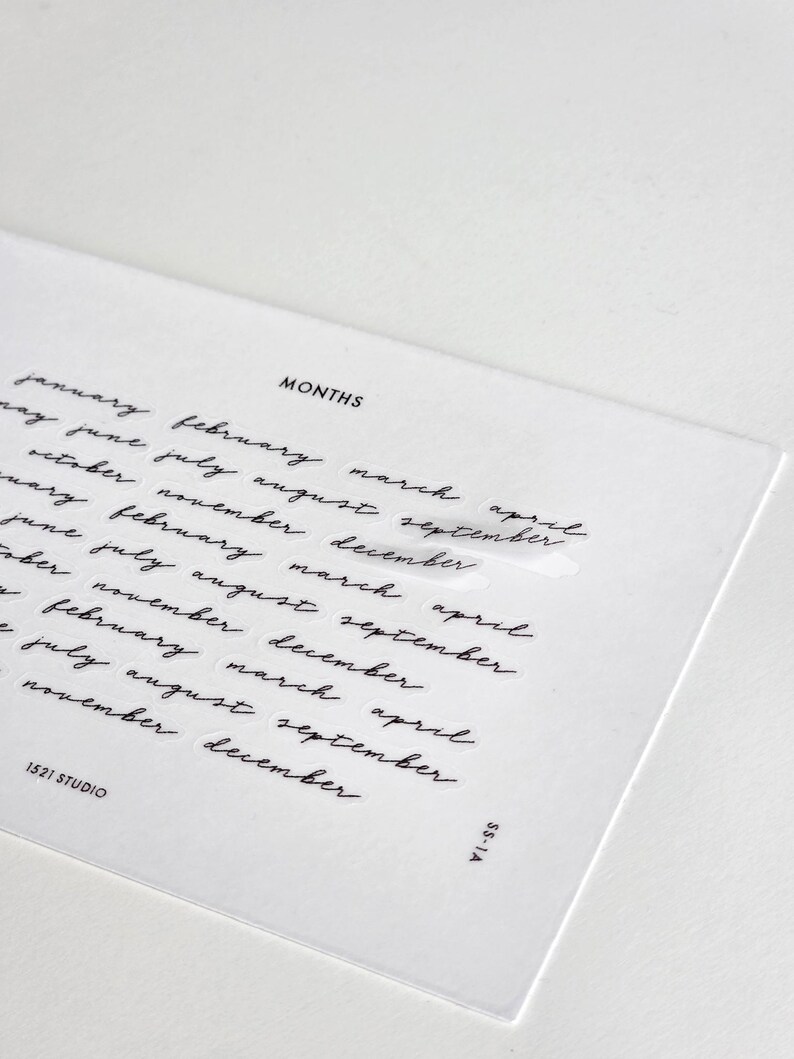 MONTHS
january february march april
may june july august september
october november december
february march april
june july august september
november december
february march april
july august september
november december
1521 STUDIO
SS-1A